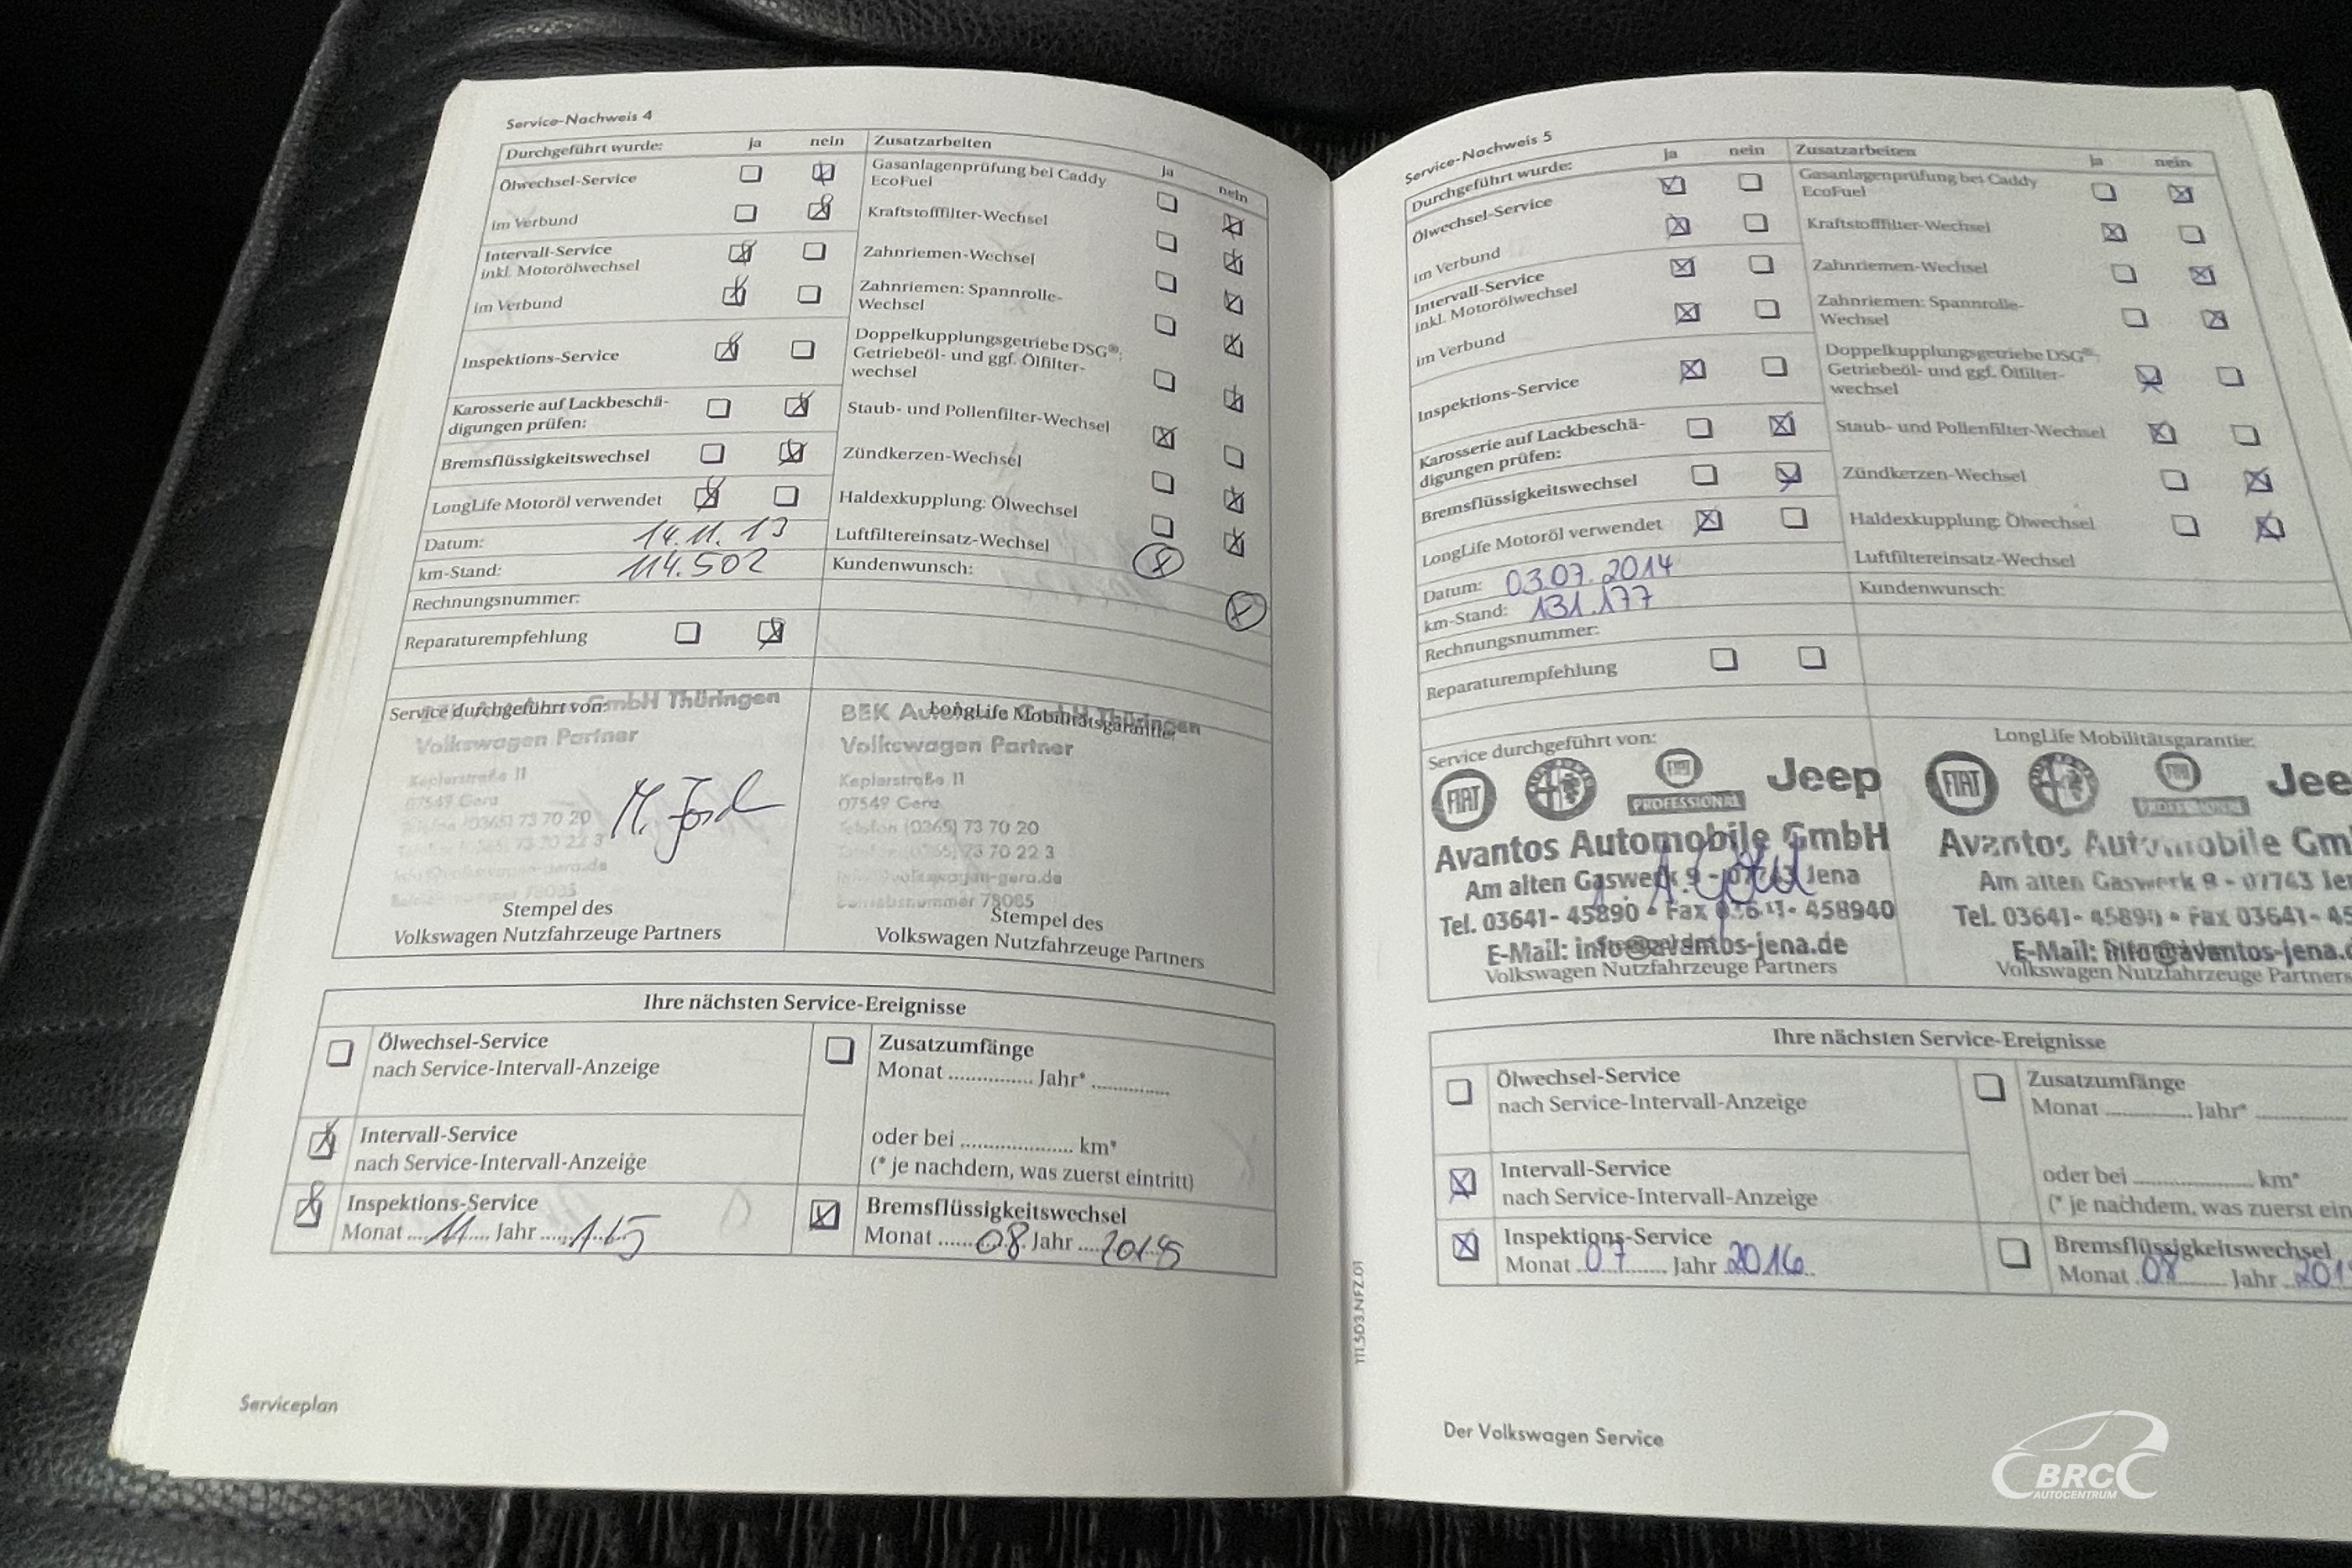 Service-Nachweis 4
Durchgeführt wurde: ja nein
Ölwechsel-Service
im Verbund
Intervall-Service
inkl. Motorölwechsel
im Verbund
Inspektions-Service
Karosserie auf Lackbeschä-
digungen prüfen:
Bremsflüssigkeitswechsel
LongLife Motoröl verwendet
Datum: 14.11.13
km-Stand: 114.502
Rechnungsnummer:
Reparaturempfehlung
Zusatzarbeiten
ja nein
Gasanlagenprüfung bei Caddy
EcoFuel
Kraftstofffilter-Wechsel
Zahnriemen-Wechsel
Zahnriemen: Spannrolle-
Wechsel
Doppelkupplungsgetriebe DSG®:
Getriebeöl- und ggf. Ölfilter-
wechsel
Staub- und Pollenfilter-Wechsel
Zündkerzen-Wechsel
Haldexkupplung: Ölwechsel
Luftfiltereinsatz-Wechsel
Kundenwunsch:
Service durchgeführt von:
GmbH Thüringen
Volkswagen Partner
Keplerstraße 11
07549 Gera
Telefon (0365) 73 70 20
73 70 22 3
Stempel des
Volkswagen Nutzfahrzeuge Partners
LongLife Mobilitätsgarantie:
BEK GmbH Thüringen
Volkswagen Partner
Keplerstraße 11
07549 Gera
Telefon (0365) 73 70 20
(0365) 73 70 22 3
info@volkswagen-gera.de
Betriebsnummer 78085
Stempel des
Volkswagen Nutzfahrzeuge Partners
Ihre nächsten Service-Ereignisse
Ölwechsel-Service
nach Service-Intervall-Anzeige
Intervall-Service
nach Service-Intervall-Anzeige
Inspektions-Service
Monat 11 Jahr 15
Zusatzumfänge
Monat ............... Jahr* ..............
oder bei .................... km*
(* je nachdem, was zuerst eintritt)
Bremsflüssigkeitswechsel
Monat 08 Jahr 2015
Serviceplan
Service-Nachweis 5
Durchgeführt wurde: ja nein
Ölwechsel-Service
im Verbund
Intervall-Service
inkl. Motorölwechsel
im Verbund
Inspektions-Service
Karosserie auf Lackbeschä-
digungen prüfen:
Bremsflüssigkeitswechsel
LongLife Motoröl verwendet
Datum: 03.07.2014
km-Stand: 131.177
Rechnungsnummer:
Reparaturempfehlung
Zusatzarbeiten ja nein
Gasanlagenprüfung bei Caddy
EcoFuel
Kraftstofffilter-Wechsel
Zahnriemen-Wechsel
Zahnriemen: Spannrolle-
Wechsel
Doppelkupplungsgetriebe DSG®:
Getriebeöl- und ggf. Ölfilter-
wechsel
Staub- und Pollenfilter-Wechsel
Zündkerzen-Wechsel
Haldexkupplung: Ölwechsel
Luftfiltereinsatz-Wechsel
Kundenwunsch:
Service durchgeführt von:
FIAT PROFESSIONAL Jeep
Avantos Automobile GmbH
Am alten Gaswerk 9 - 07743 Jena
Tel. 03641- 45890 • Fax 03641- 458940
E-Mail: info@avantos-jena.de
Volkswagen Nutzfahrzeuge Partners
LongLife Mobilitätsgarantie:
FIAT PROFESSIONAL Jee
Avantos Automobile Gm
Am alten Gaswerk 9 - 07743 Jen
Tel. 03641- 45890 • Fax 03641- 45
E-Mail: info@avantos-jena.d
Volkswagen Nutzfahrzeuge Partners
Ihre nächsten Service-Ereignisse
Ölwechsel-Service
nach Service-Intervall-Anzeige
Intervall-Service
nach Service-Intervall-Anzeige
Inspektions-Service
Monat 07 Jahr 2016
Zusatzumfänge
Monat ............... Jahr* ..............
oder bei .................... km*
(* je nachdem, was zuerst ein
Bremsflüssigkeitswechsel
Monat 08 Jahr 201
111.5D3.NFZ.01
Der Volkswagen Service
BRC
AUTOCENTRUM